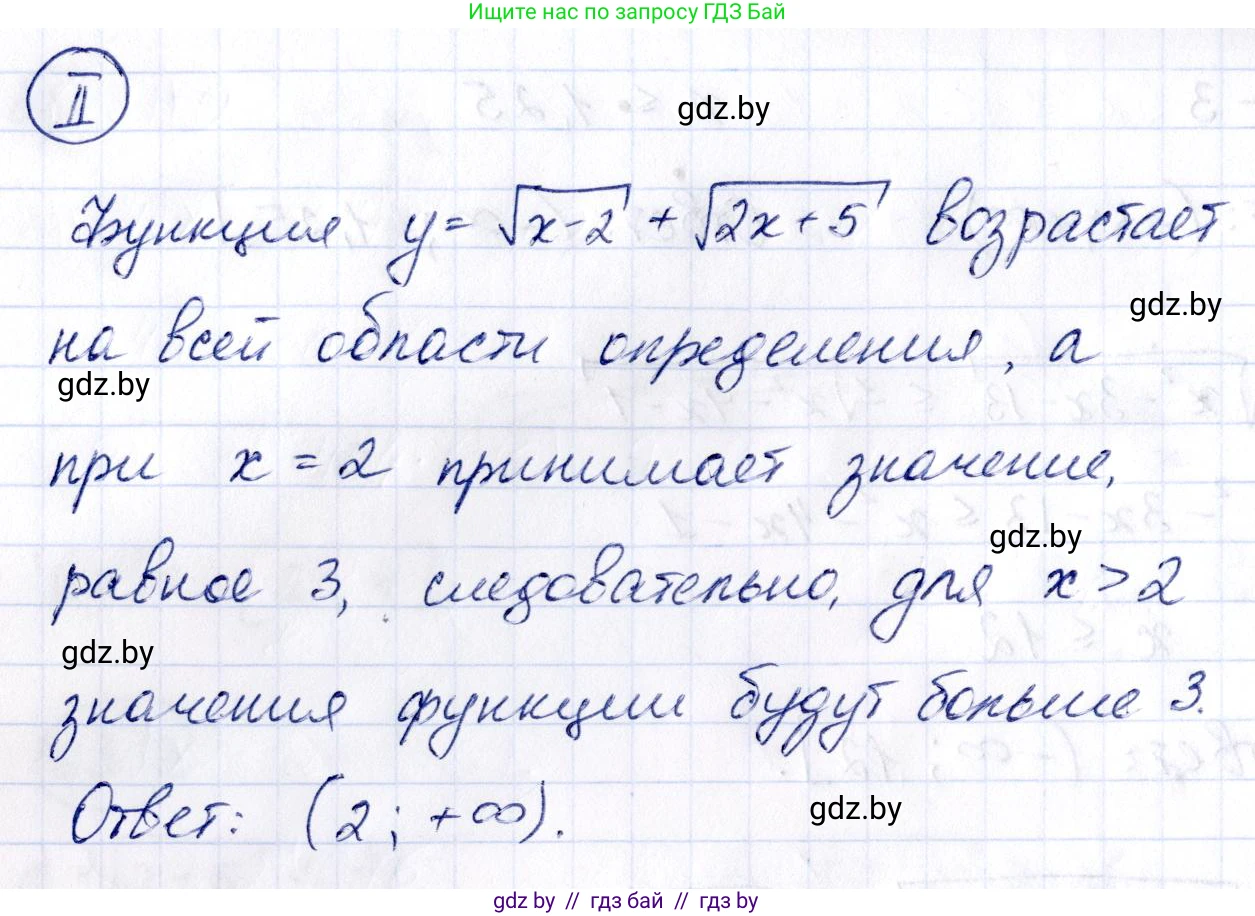 Ищите нас по запросу ГДЗ Бай
II
gdz.by
Функция y = √(x-2) + √(2x+5) возрастает
gdz.by
на всей области определения, а
gdz.by
при x = 2 принимает значение,
gdz.by
равное 3, следовательно, для x > 2
gdz.by
значения функции будут больше 3.
Ответ: (2; +∞).
gdz.by
gdz.by // гдз бай // гдз by